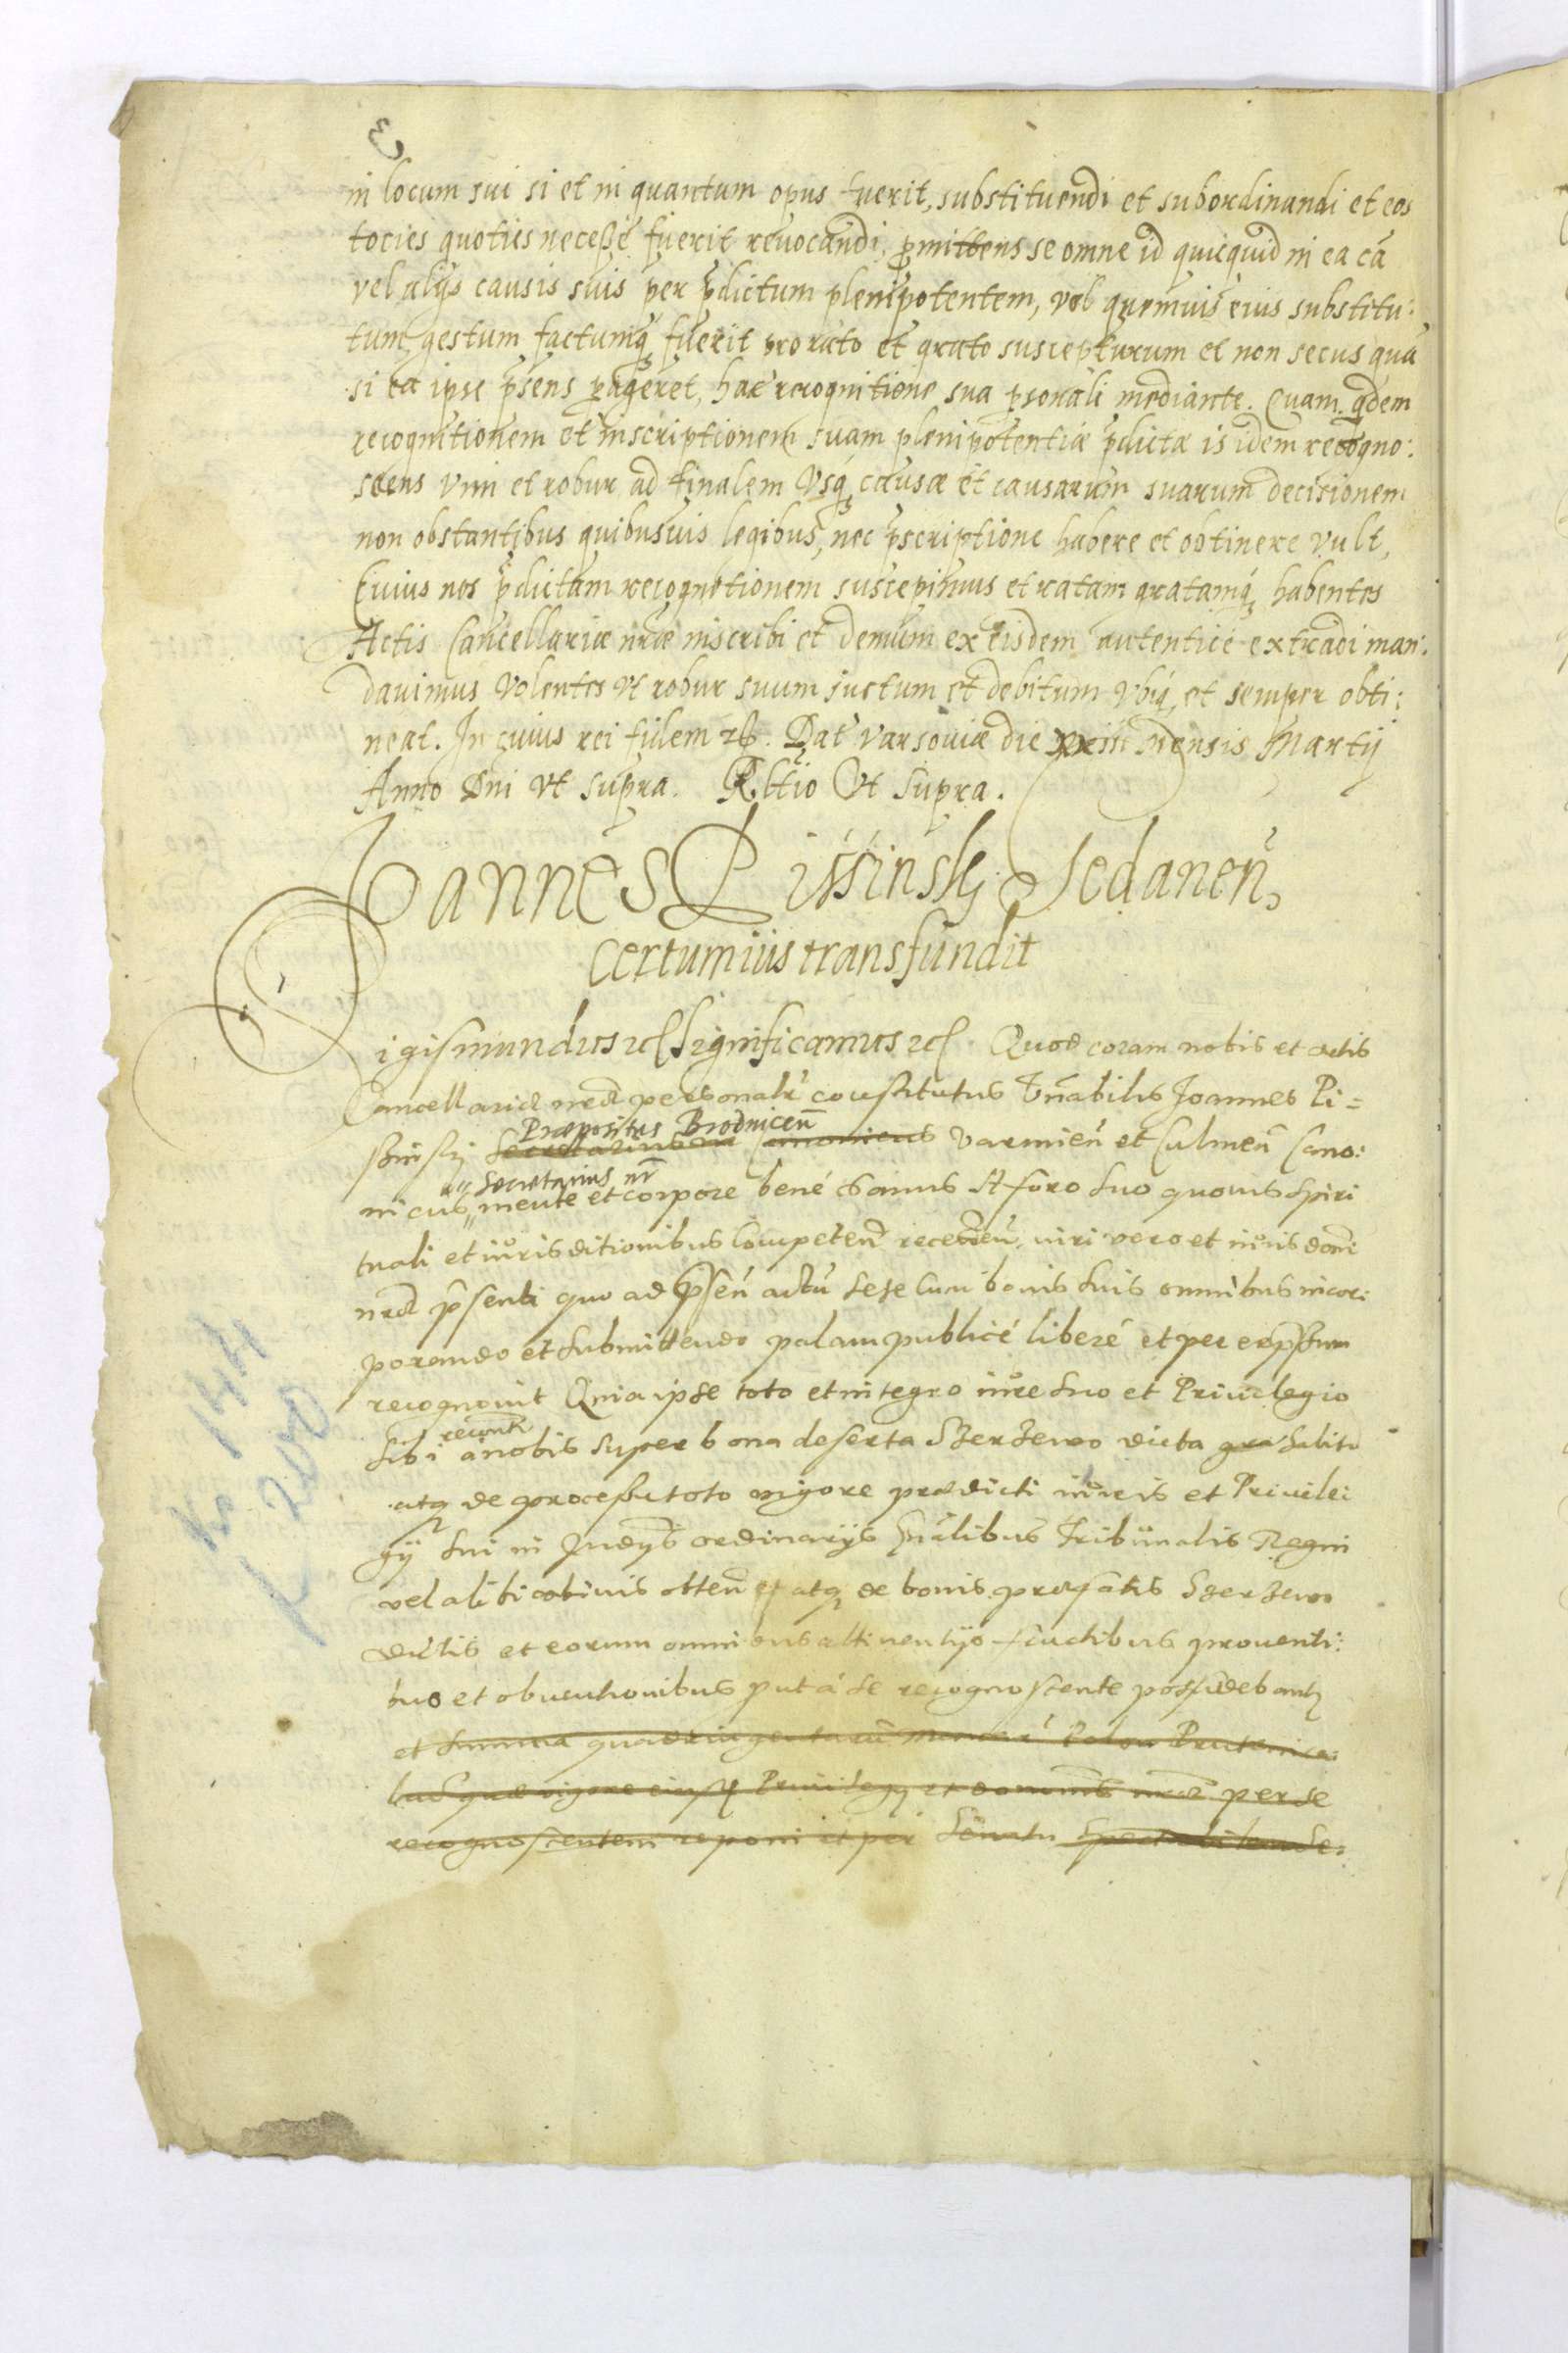 in locum sui si et in quantum opus fuerit, substituendi et subordinandi et eos
tocies quoties necesse fuerit reuocandi, pmittens se omne id quicquid in ea cā
vel alijs causis suis per pdictum plenipotentem, vel quemuis eius substitu:
tum gestum factumq fuerit pro rato et grato suscepturum et non secus quā
si ea ipse psens pageret, hac recognitione sua psonali mediante. Quam qdem
recognitionem et inscriptionem suam plenipotentiæ pdictæ is idem recogno:
scens vim et robur ad finalem vsq causæ et causarum suarum decisionem
non obstantibus quibusuis legibus, nec pscriptione habere et obtinere vult,
Cuius nos pdictam recognitionem suscepimus et ratam gratamq habentes
Actis Cancellariæ nræ inscribi et demum ex eisdem autenticè extradi man:
dauimus volentes vt robur suum iustum et debitum vbiq et semper obti:
neat. In cuius rei fidem Dat Varsouiæ die xxiii mensis Martij
Anno Dni vt supra. Rltio Vt supra.
Joannes Pissinskij Sedaneń
certum ius transfundit
Sigismundus Significamus Quod coram nobis et actis
Cancellariæ nræ personalr constitutus Vnabilis Joannes Pi=
Præpositus Brodniceń
ssinskj Secretarius Canonicus Varmień et Culmeń Cano:
Secretarius nr
nicus mente et corpore bené sanus A foro suo quouis spiri
tuali et iurisditionibus competeń receden iuri vero et iurisdoni
nræ psenti quo ad psen actū sese cum bonis suis omnibus incor:
porando et submittendo palam publicé liberé et per expssum
recognouit Quia ipse toto et integro iure suo et Priuilegio
sibi a nobis super bona deserta Szerzewo dicta salito
atq de processu toto vigore prædicti iuris et Priuile:
gij sui in Judijs ordinarijs Gnalibus Tribunalis Regni
vel alibi vbiuis obten et atq de bonis præfatis Szerzewo
dictis et eorum omnibus attinentijs fructibus prouenti:
bus et obuentionibus se recognoscente
et summa quadringentarū Marcar Polon Prutenica:
vigore Priuilegij nræ per se
recognoscentem reponi et per
No 144